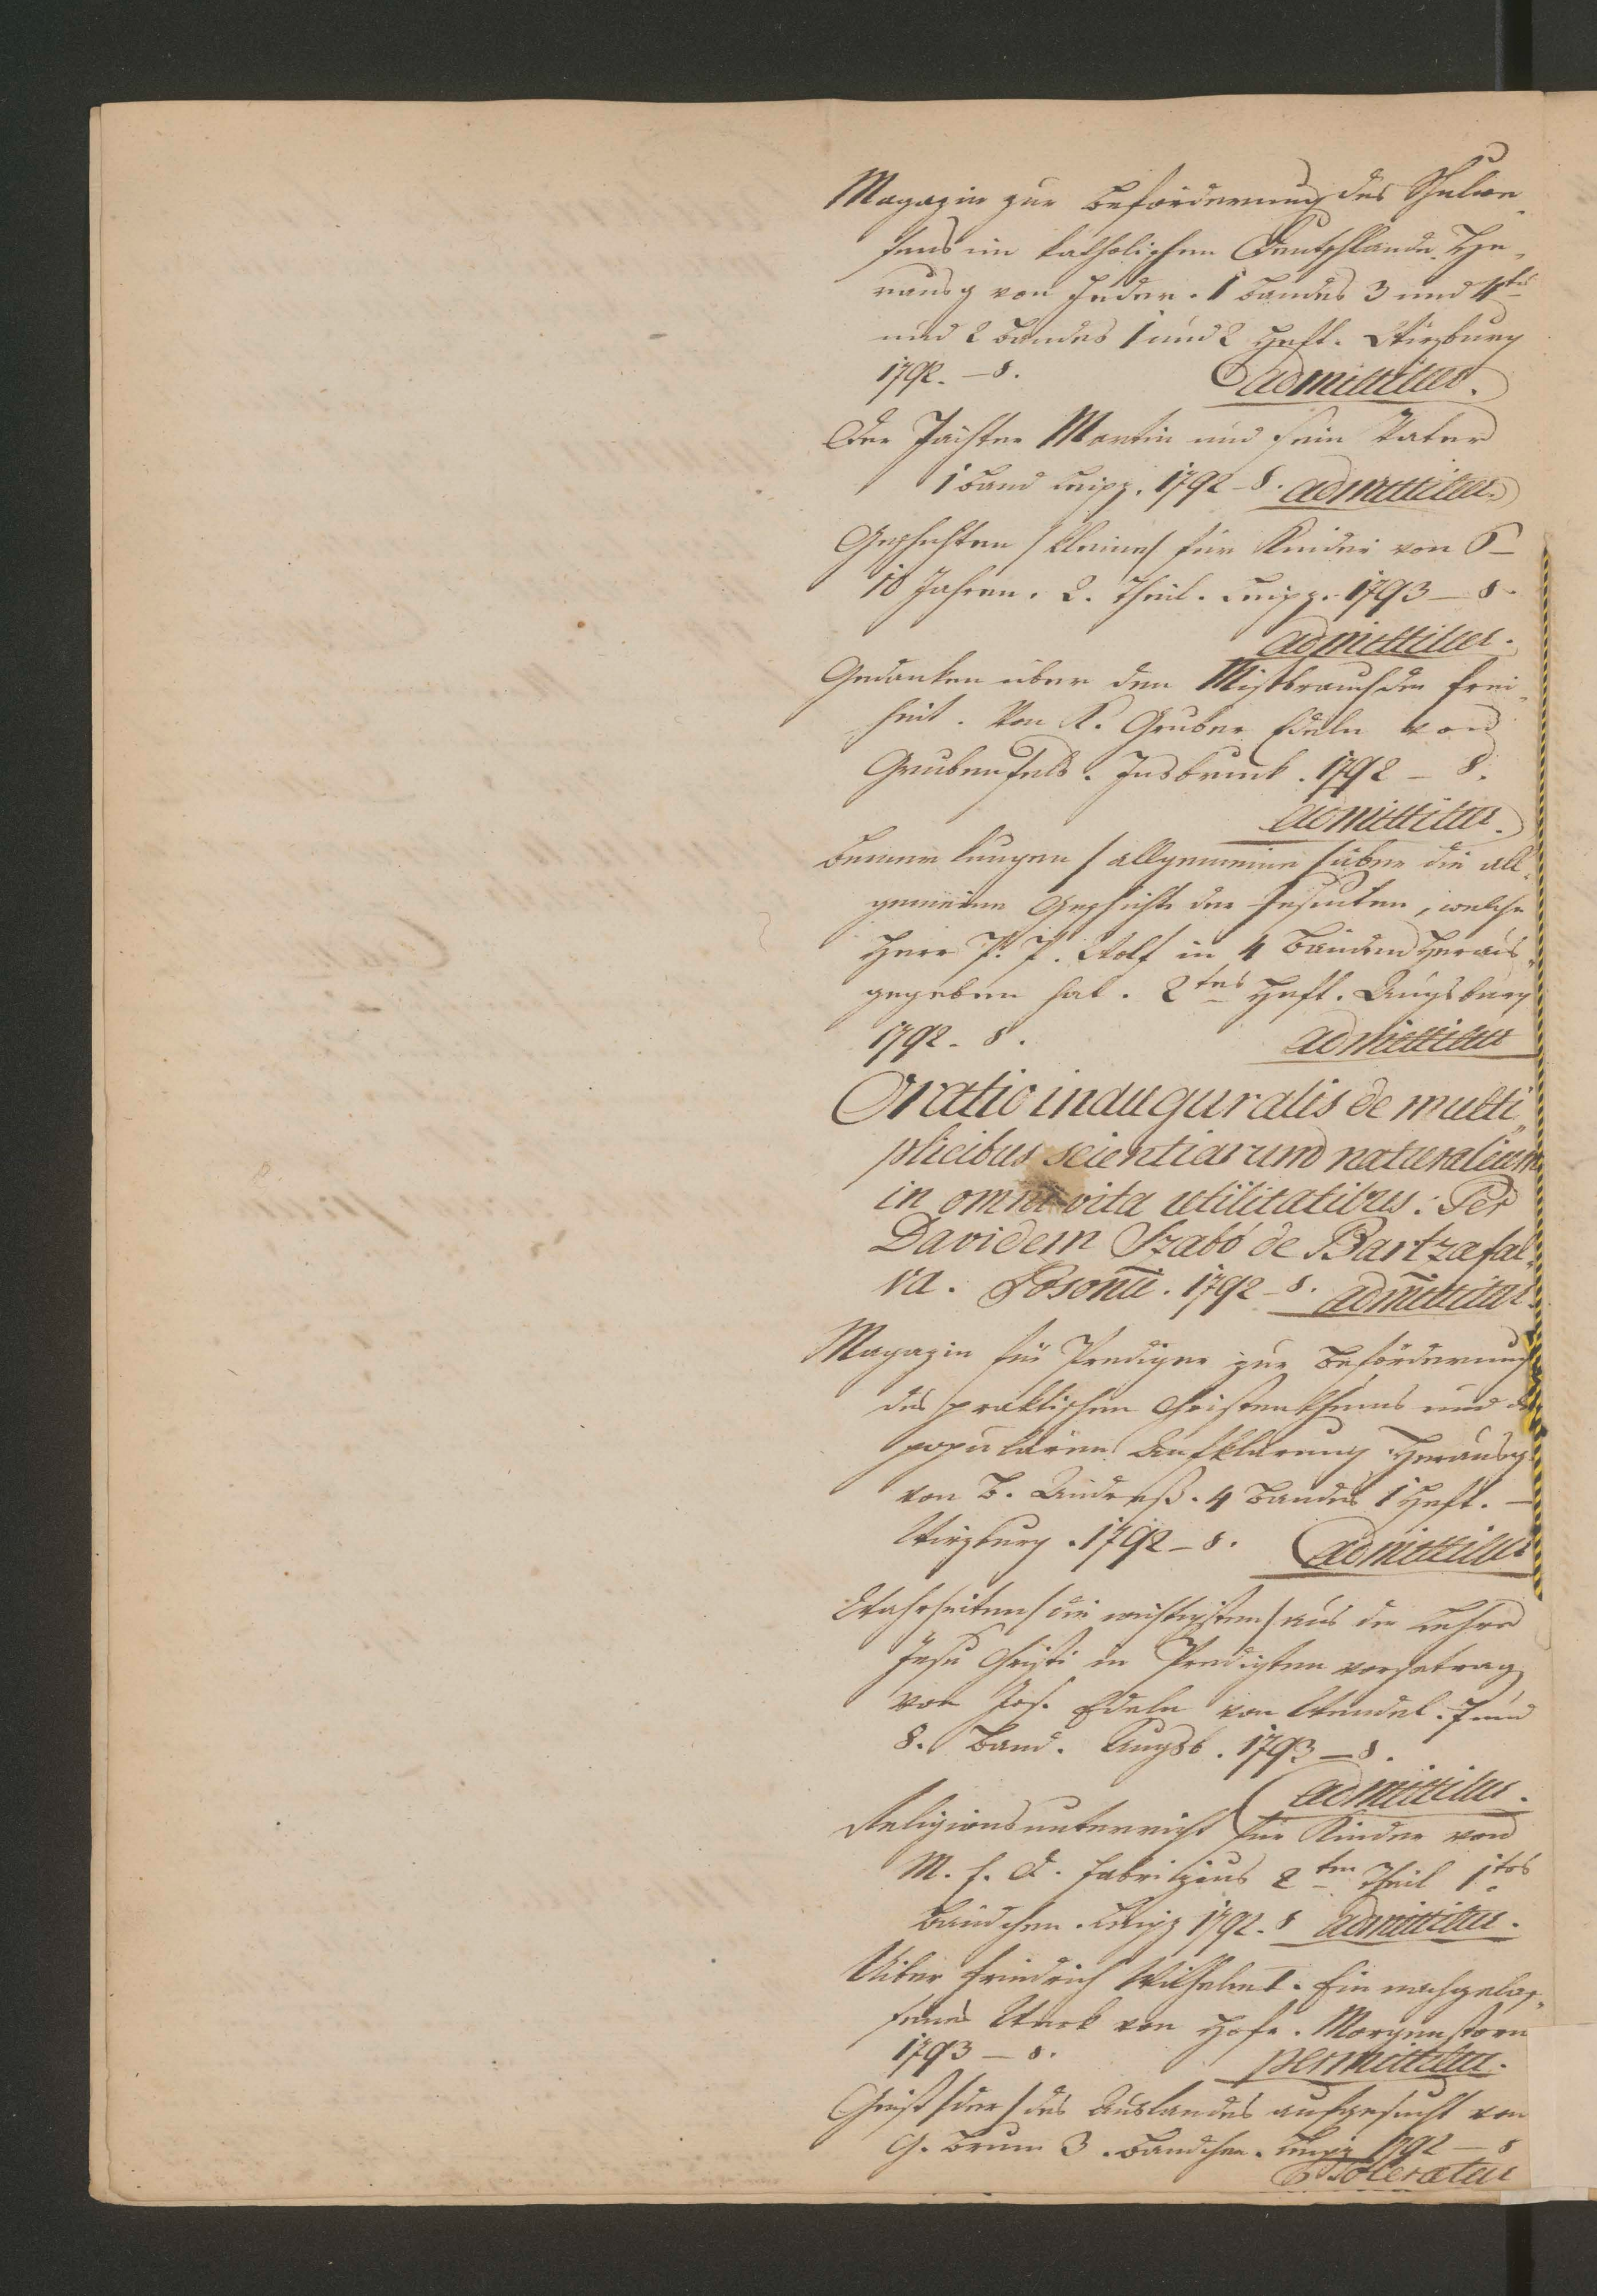 Magazin zur Beförderung des Schulwe-
sens im katholischen Deutschlande. He-
rausg von Feder. 1 Bandes 3 und 4tes
und 2 Bandes 1 und 2 Heft. Wirzburg
1792. – 8. admittitur.
Der Pächter Martin und sein Vater
1 Band Leipz. 1792 – 8. admittitur.
Geschichten / kleine / für Kinder von 6–
10 Jahren. 2. Theil. Leipz. 1793 – 8.
admittitur.
Gedanken über den Misbrauch der Frei-
heit. Von K. Gruber Edeln von
Grubenfels. Insbruck. 1792 – 8.
admittitur.
Bemerkungen / allgemeine / über die all-
gemeine Geschichte der Jesuiten, welche
Herr P. P. Wolf in 4 Bänden heraus-
gegeben hat. 2tes Heft. Augsburg
1792. 8. admittitur
Oratio inauguralis de multi-
plicibus scientiarum naturalium
in omni vita utilitatibus: Per
Davidem Szabó de Bartzafal-
va. Posonii. 1792 – 8. admittitur.
Magazin für Prediger zur Beförderung
des praktischen Christenthums und der
populären Aufklärung herausg
von B. Andreß. 4 Bandes 1 Heft. –
Wirzburg. 1792 – 8. admittitur
Wahrheiten / die wichtigsten / aus der Lehre
Jesu Christi in Predigten vorgetrag
von Jos. Edeln von Wendel. 7 und
8. Band. Augsb. 1793 – 8.
admittitur.
Religionsunterricht für Kinder von
M. F. A. Fabritzius 2ten Theil 1tes
Bändchen. Leipz 1792. 8 admittitur.
Uiber Friedrich Wilhelm I. Ein nachgelas-
senes Werk von Hofr. Morgenstern
1793 – 8. permittitur.
Geist / der / des Auslandes aufgesucht von
G. Brun 3. Bandchen. Leipz 1792 – 8
Toleratur